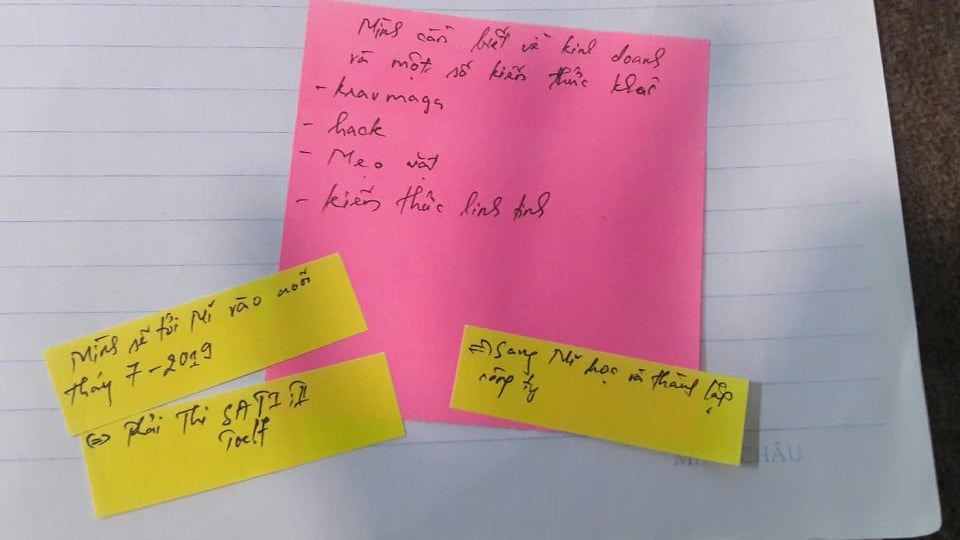 Mình cần biết về kinh doanh
và một số kiến thức khác
- kravmaga
- hack
- Mẹo vặt
- kiến thức linh tinh
Mình sẽ tới Mĩ vào cuối
tháng 7-2019
<=> Phải Thi SAT I; II
Toelf
=> Sang Mĩ học và thành lập
công ty
CHÂU